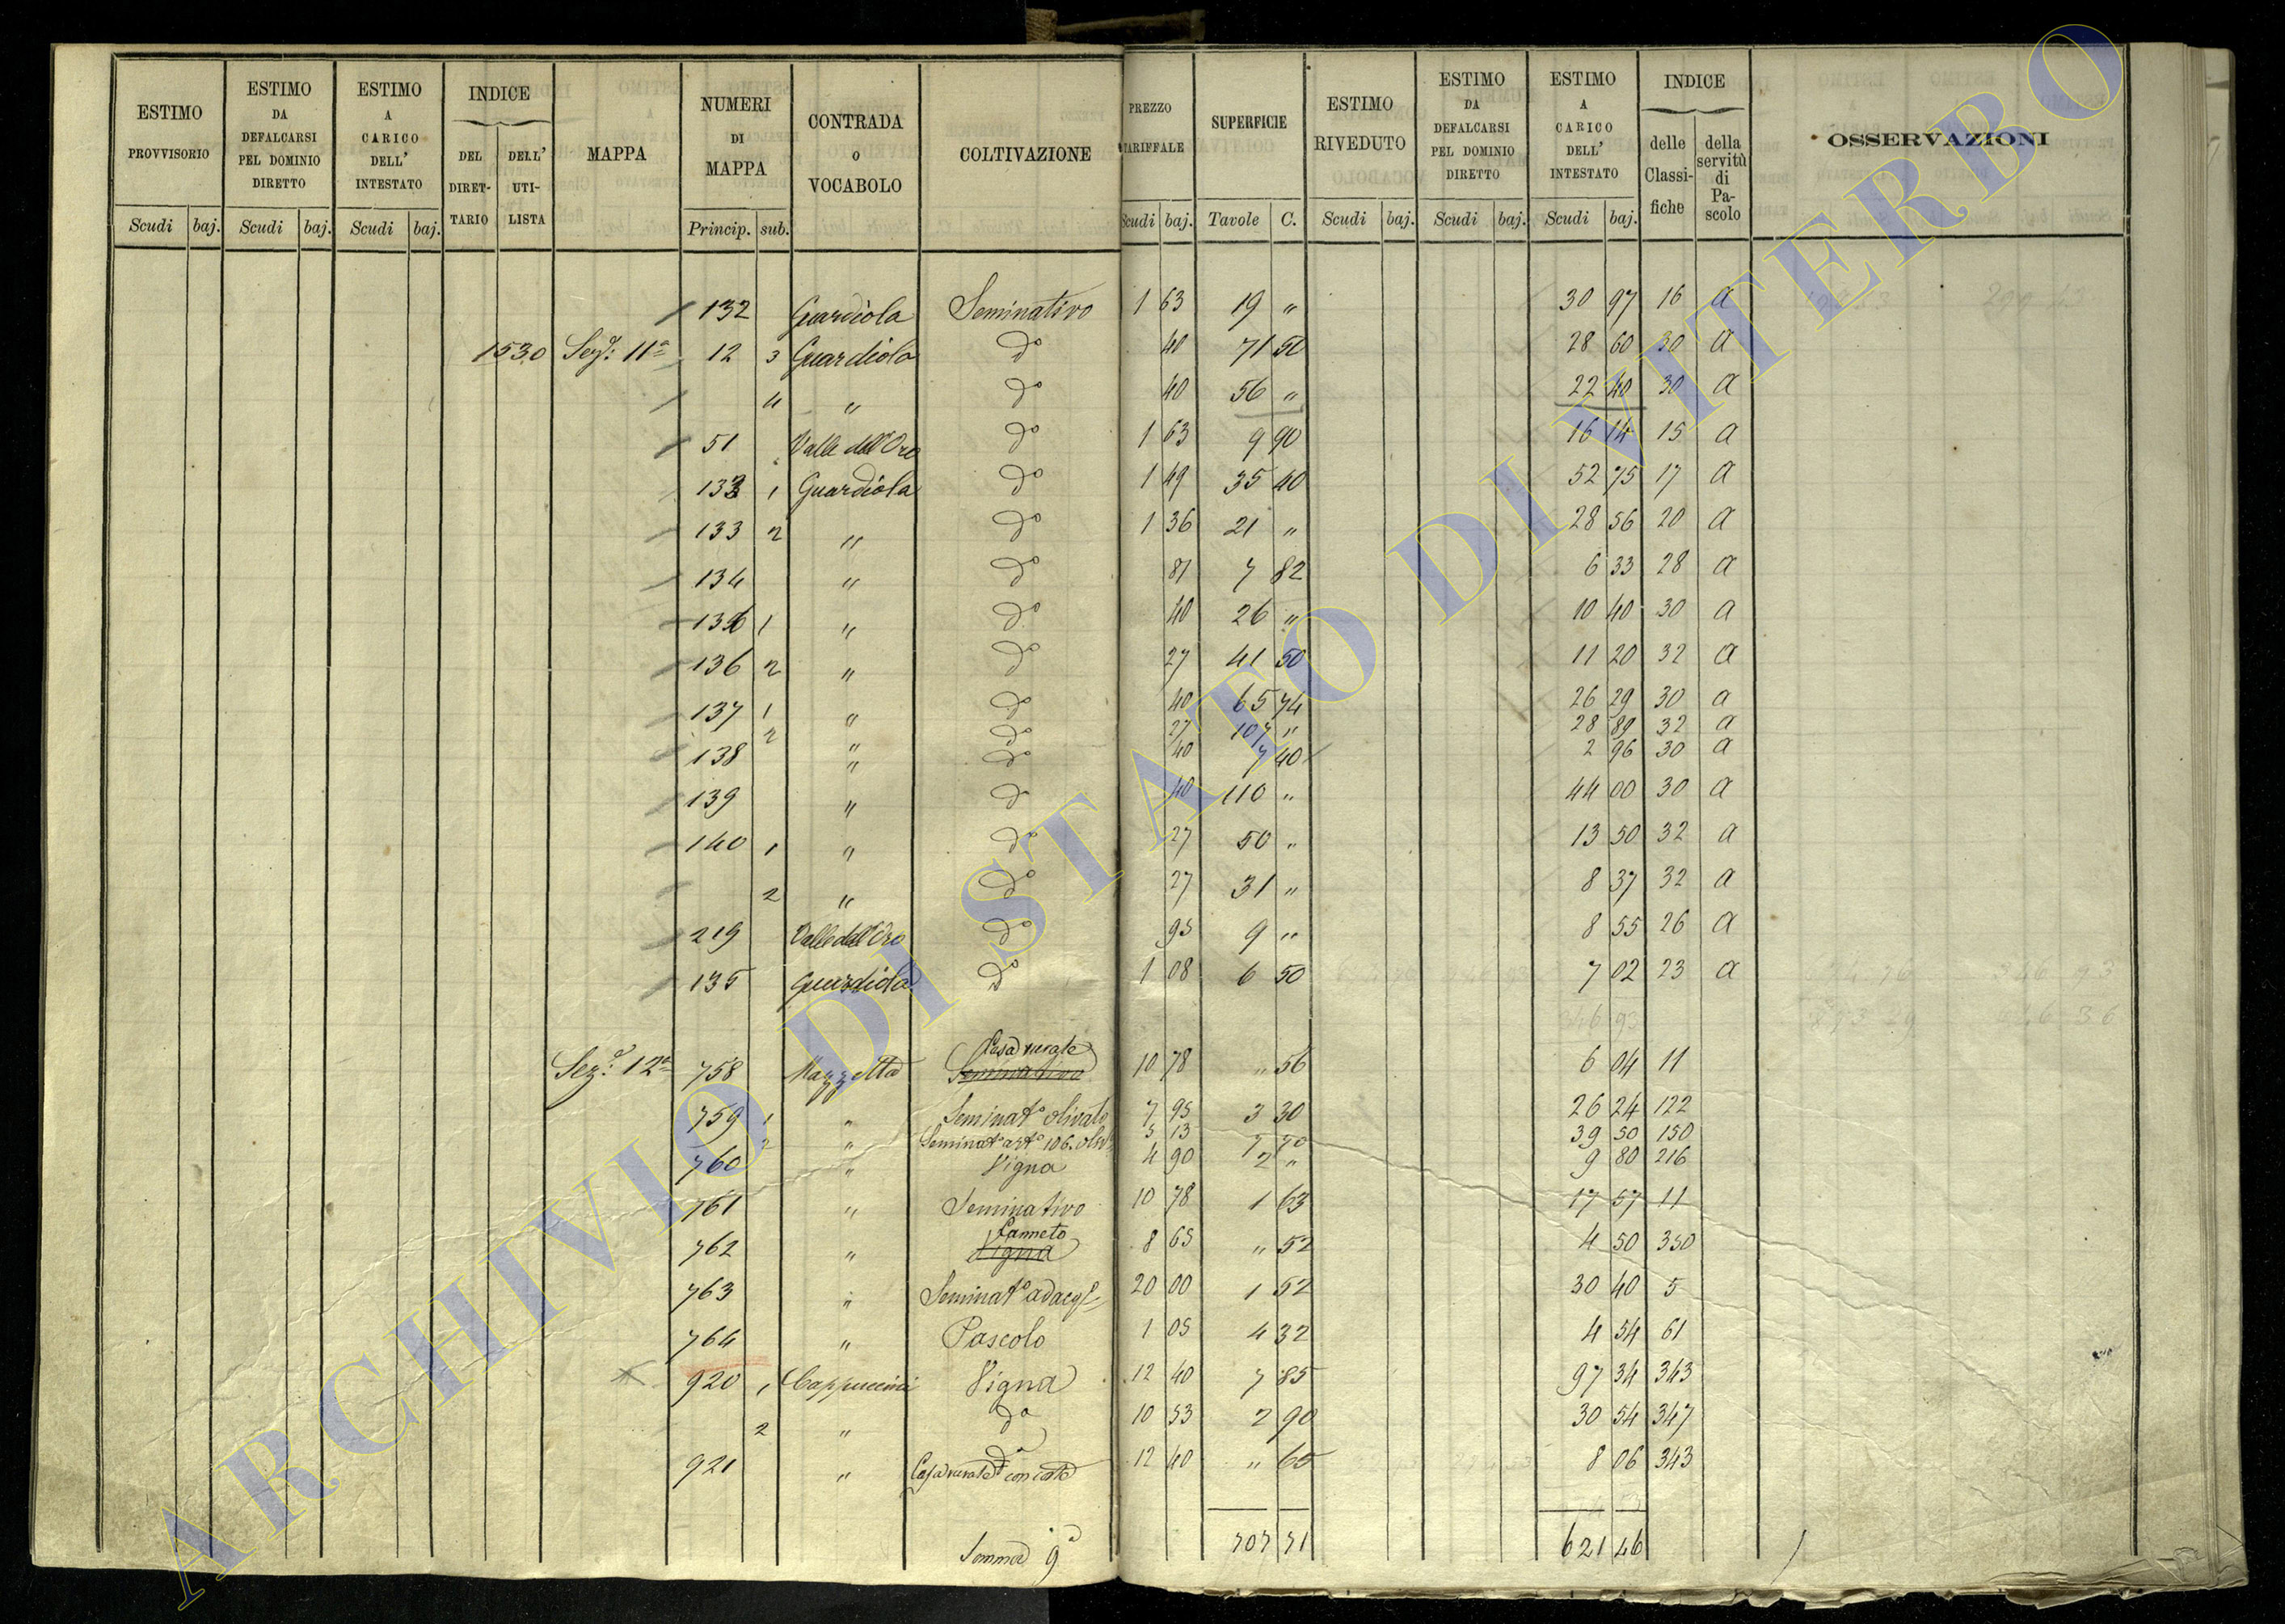 ESTIMO PROVVISORIO | ESTIMO DA DEFALCARSI PEL DOMINIO DIRETTO | ESTIMO A CARICO DELL' INTESTATO | INDICE | MAPPA | NUMERI DI MAPPA | CONTRADA O VOCABOLO | COLTIVAZIONE | PREZZO TARIFFALE | SUPERFICIE | ESTIMO RIVEDUTO | ESTIMO DA DEFALCARSI PEL DOMINIO DIRETTO | ESTIMO A CARICO DELL' INTESTATO | INDICE | OSSERVAZIONI
DEL DIRETTARIO | DELL' UTILISTA | delle Classifiche | della servitù di Pascolo
Scudi baj. | Scudi baj. | Scudi baj. | Princip. sub. | Scudi baj. | Tavole C. | Scudi baj. | Scudi baj. | Scudi baj.
132 Guardiola Seminativo 1 63 19 " 30 97 16 a
1530 Seze: 11a 12 3 Guardiola do 40 71 50 28 60 30 a
4 " do 40 56 " 22 40 30 a
51 Valle dell'Oro do 1 63 9 90 16 14 15 a
133 1 Guardiola do 1 49 35 40 52 75 17 a
133 2 " do 1 36 21 " 28 56 20 a
134 " do 81 7 82 6 33 28 a
136 1 " do 40 26 " 10 40 30 a
136 2 " do 27 41 50 11 20 32 a
137 1 " do 40 65 74 26 29 30 a
2 do 27 107 " 28 89 32 a
138 " do 40 7 40 2 96 30 a
139 " do 40 110 " 44 00 30 a
140 1 " do 27 50 " 13 50 32 a
2 " do 27 31 " 8 37 32 a
219 Valle dell'Oro do 95 9 " 8 55 26 a
135 Guardiola do 1 08 6 50 7 02 23 a
346 93
Casa rurale
Seze: 12a 758 Mazzetta Seminativo 10 78 " 56 6 04 11
759 1 " Seminato olivato 7 95 3 30 26 24 122
2 " Seminato arto 106. oliv 5 13 7 70 39 50 150
760 " Vigna 4 90 2 " 9 80 216
761 " Seminativo 10 78 1 63 17 57 11
Canneto
762 " Vigna 8 65 " 52 4 50 350
763 " Seminato adacqo 20 00 1 52 30 40 5
764 " Pascolo 1 05 4 32 4 54 61
920 1 Cappuccini Vigna 12 40 7 85 97 34 343
2 " do 10 53 2 90 30 54 347
921 " Casa rurale con corte 12 40 " 65 8 06 343
Somma 9a 707 71 621 46
ARCHIVIO DI STATO DI VITERBO